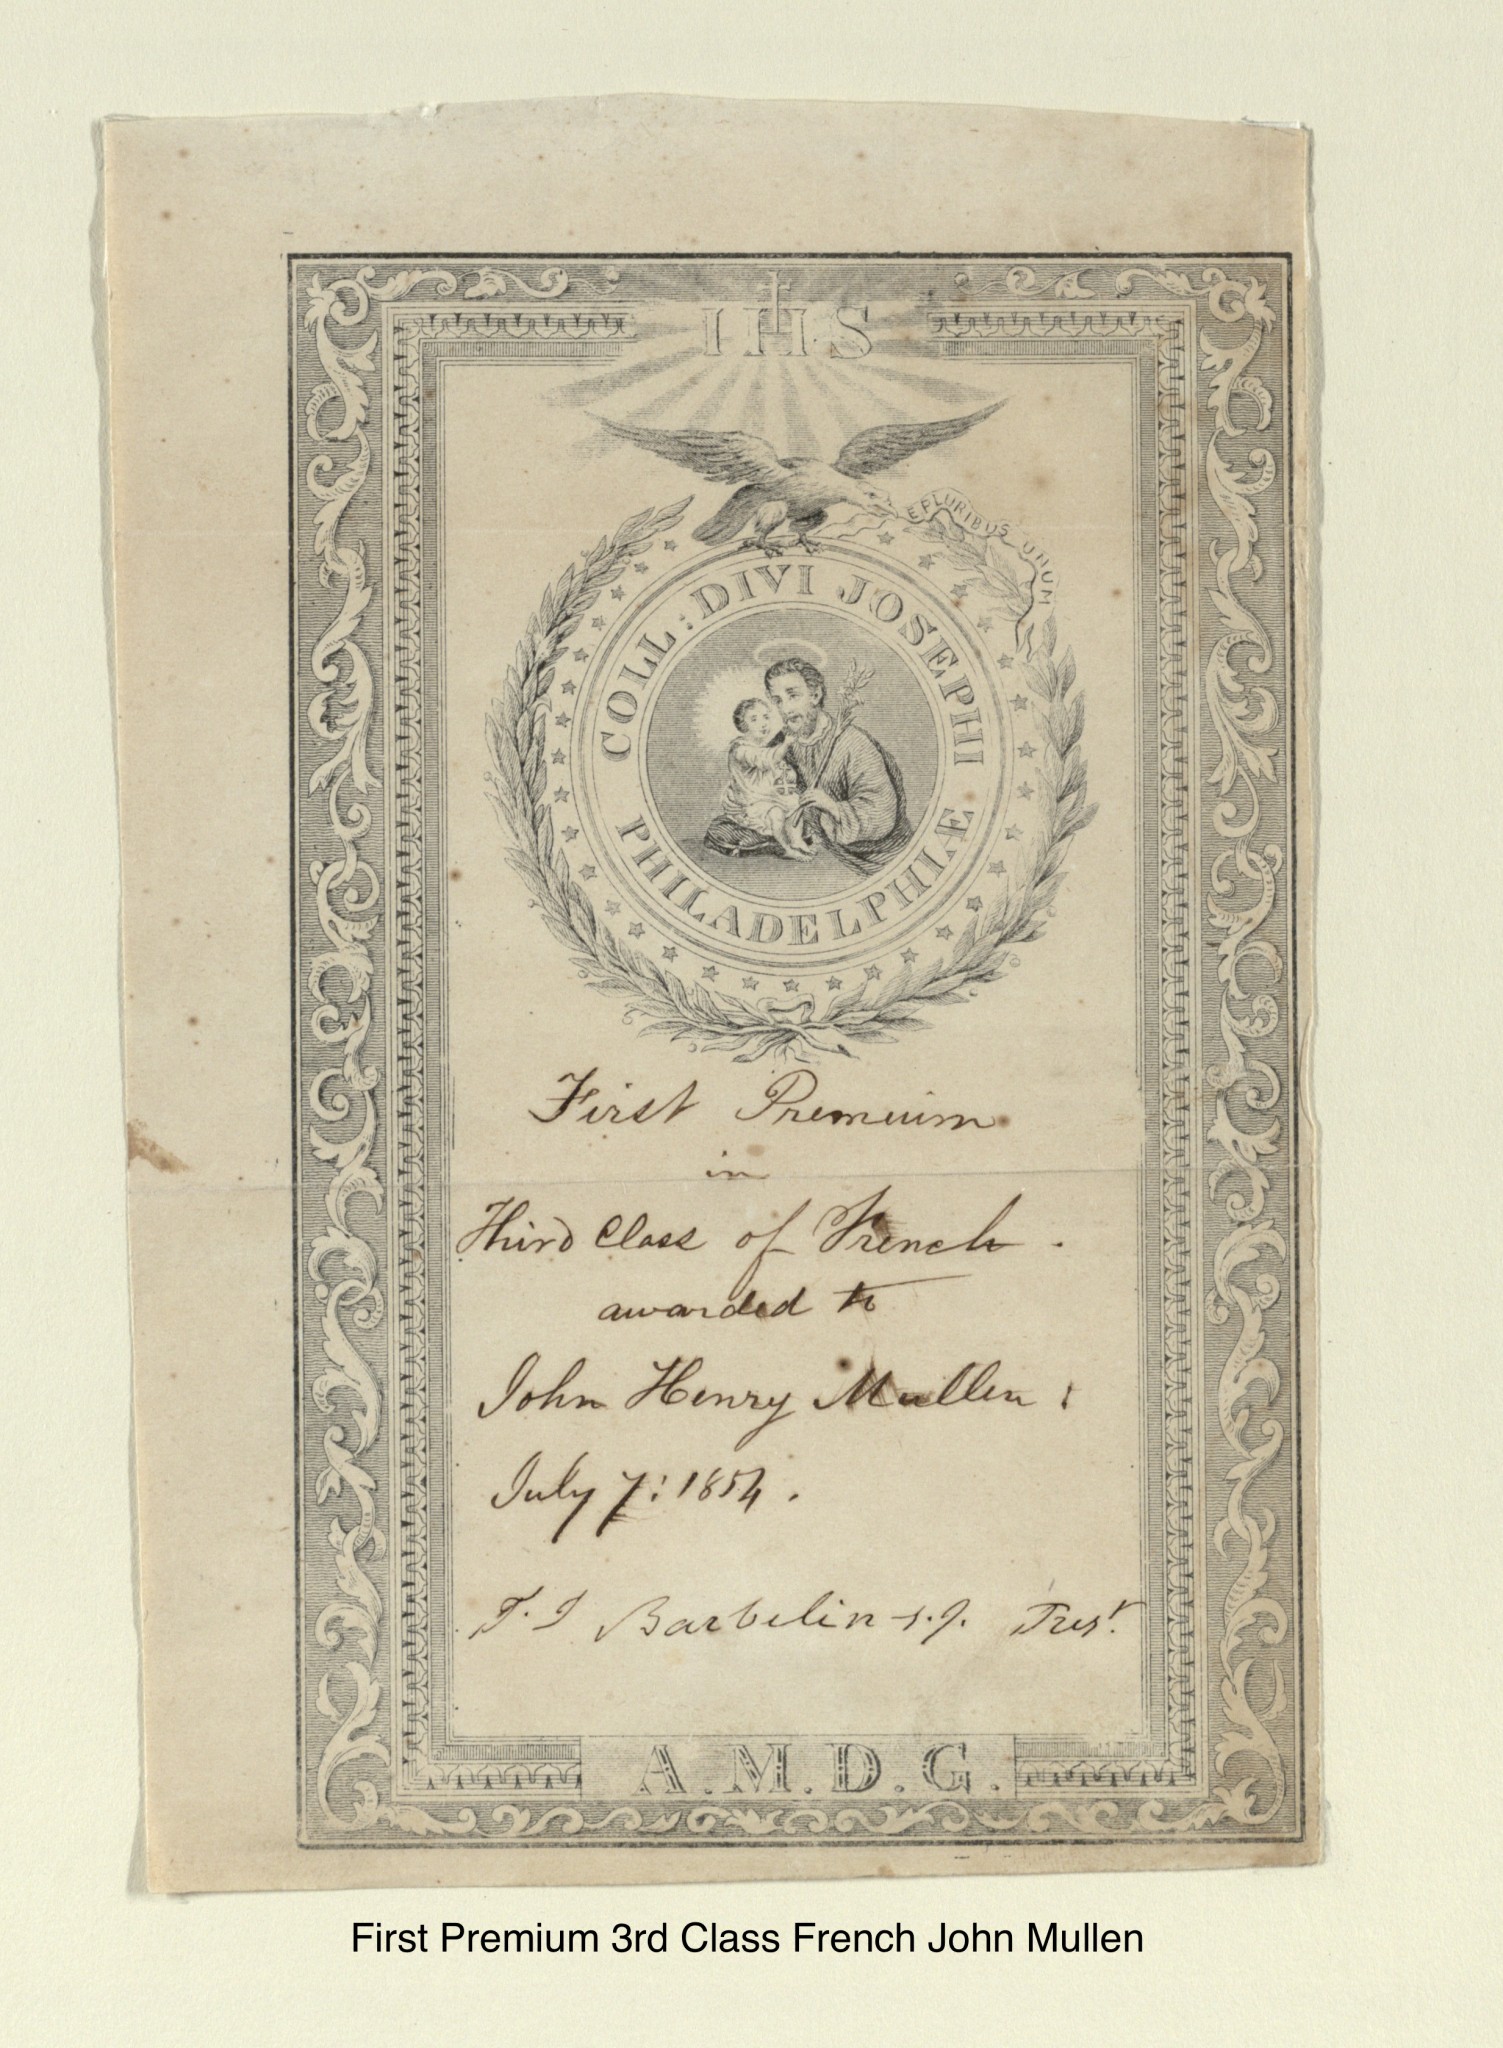 IHS
E PLURIBUS UNUM
COLL: DIVI JOSEPHI
PHILADELPHIÆ
First Premium
in
Third Class of French.
awarded to
John Henry Mullen:
July 7: 1854.
F. I Barbelin s.j. Prest.
A.M.D.G.
First Premium 3rd Class French John Mullen